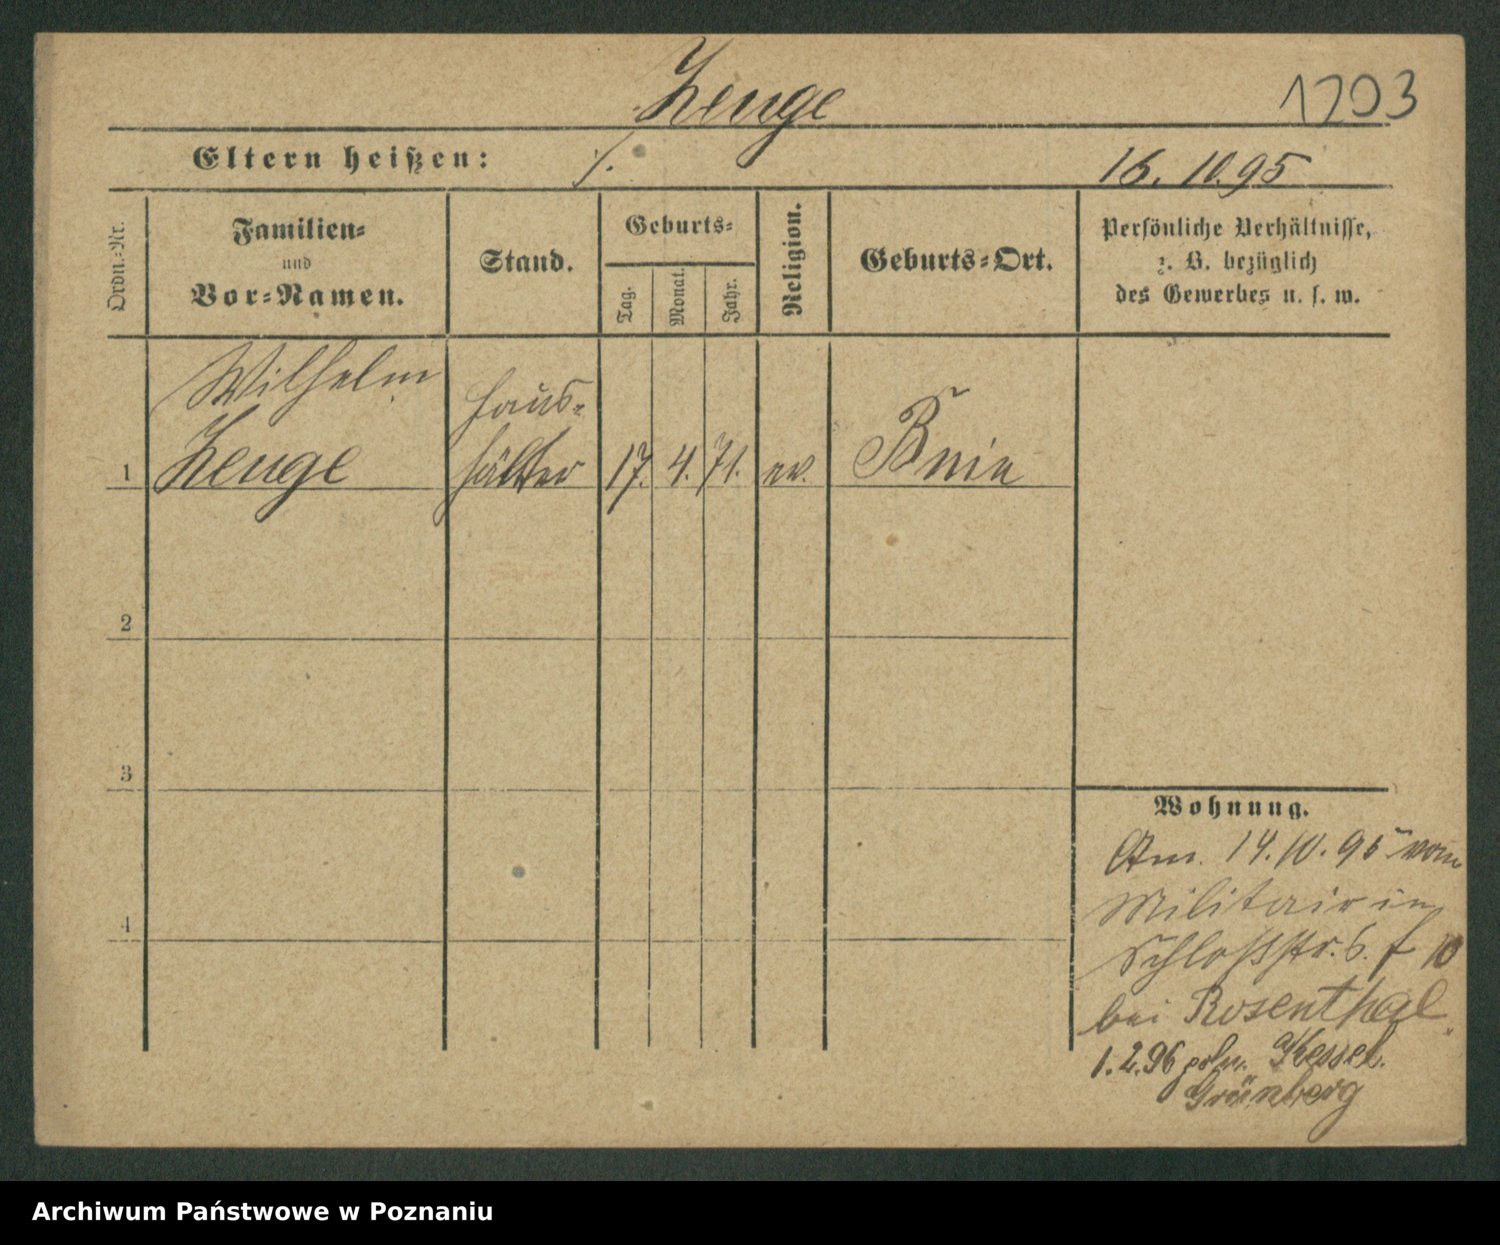 Zenge
1203
Eltern heißen: ./.
16. 10. 95
Ordn.-Nr.
Familien-
und
Vor-Namen.
Stand.
Geburts-
Tag.
Monat.
Jahr.
Religion.
Geburts-Ort.
Persönliche Verhältnisse,
z. B. bezüglich
des Gewerbes u. s. w.
Wilhelm
Zenge
Haus-
hälter
1
17. 4. 71. ev. Bnin
2
3
4
Wohnung.
Am. 14. 10. 95 vom
Militair in
Schloßstr. 6. f 10
bei Rosenthal
1. 2. 96 poln. Kessel.
Grünberg
Archiwum Państwowe w Poznaniu